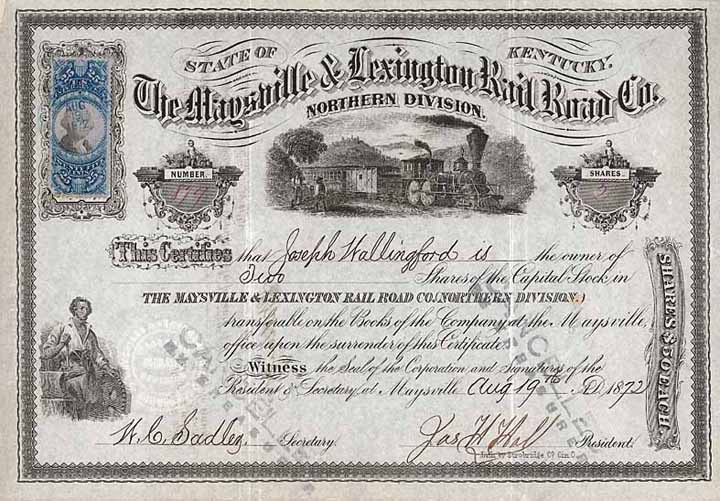 STATE OF KENTUCKY.
The Maysville & Lexington Rail Road Co.
NORTHERN DIVISION.
NUMBER.
SHARES.
This Certifies that Joseph Wallingford is the owner of
Two Shares of the Capital Stock in
THE MAYSVILLE & LEXINGTON RAIL ROAD CO. (NORTHERN DIVISION,)
transferable on the Books of the Company, at the Maysville,
office upon the surrender of this Certificate.
Witness the Seal of the Corporation and Signatures of the
President & Secretary, at Maysville, Aug 19th A.D. 1872
SHARES $50 EACH.
CANCELLED
W. C. Sadler, Secretary.
Jas H Hall President.
Lith. by Strobridge & Co. Cin. O.